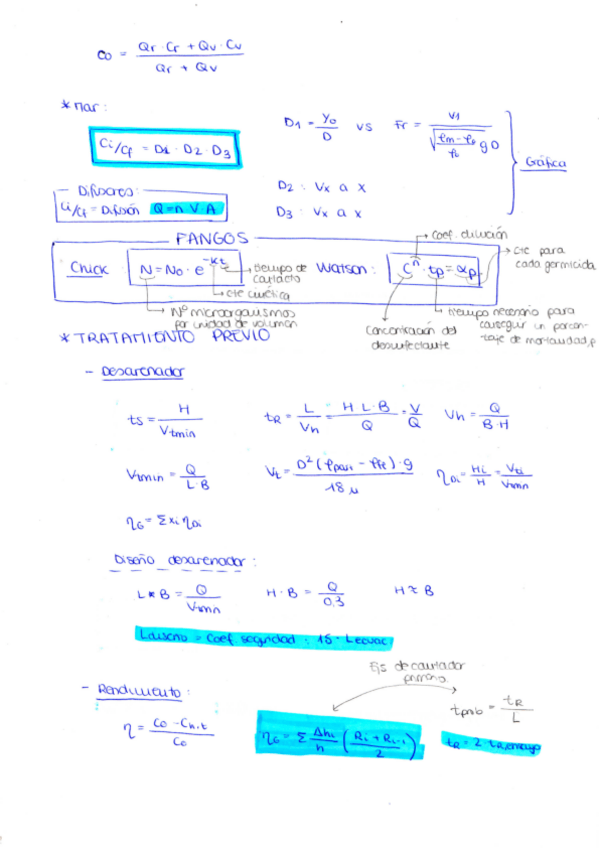 C₀ = (Qr · Cr + Qv · Cv) / (Qr + Qv)
* Mar:
Ci/Cf = D1 · D2 · D3
D1 = Y₀/D vs Fr = V1 / √((ρm - ρ₀)/ρ₀ g D)
Gráfica
D2 : Vx a x
D3 : Vx a x
Difusores:
Ci/Cf = Difusión Q = n V A
FANGOS
Coef. dilución
Chick: N = N₀ · e^(-kt)
tiempo de contacto
cte cinética
Nº microorganismos por unidad de volumen
Watson: Cⁿ · tp = αp
cte para cada germicida
Concentración del desinfectante
tiempo necesario para conseguir un porcentaje de mortandad, p
* TRATAMIENTO PREVIO
- Desarenador
ts = H / Vtmin
tR = L/Vh = H·L·B / Q = V/Q
Vh = Q / B·H
Vtmin = Q / L·B
Vt = D² (ρpart - ρfl) · g / 18 μ
ηDi = Hi/H = Vti/Vtmin
ηG = Σ xi ηDi
Diseño desarenador:
L * B = Q / Vtmin
H · B = Q / 0,3
H ≈ B
Ldiseño = coef seguridad : 15 · Lecuac
- Rendimiento:
Ejs decantador primario.
η = (C₀ - Ch,t) / C₀
ηG = Σ Δhi/h ((Ri + Ri-1) / 2)
tprob = tR / L
tR = 2 · tR,ensayo